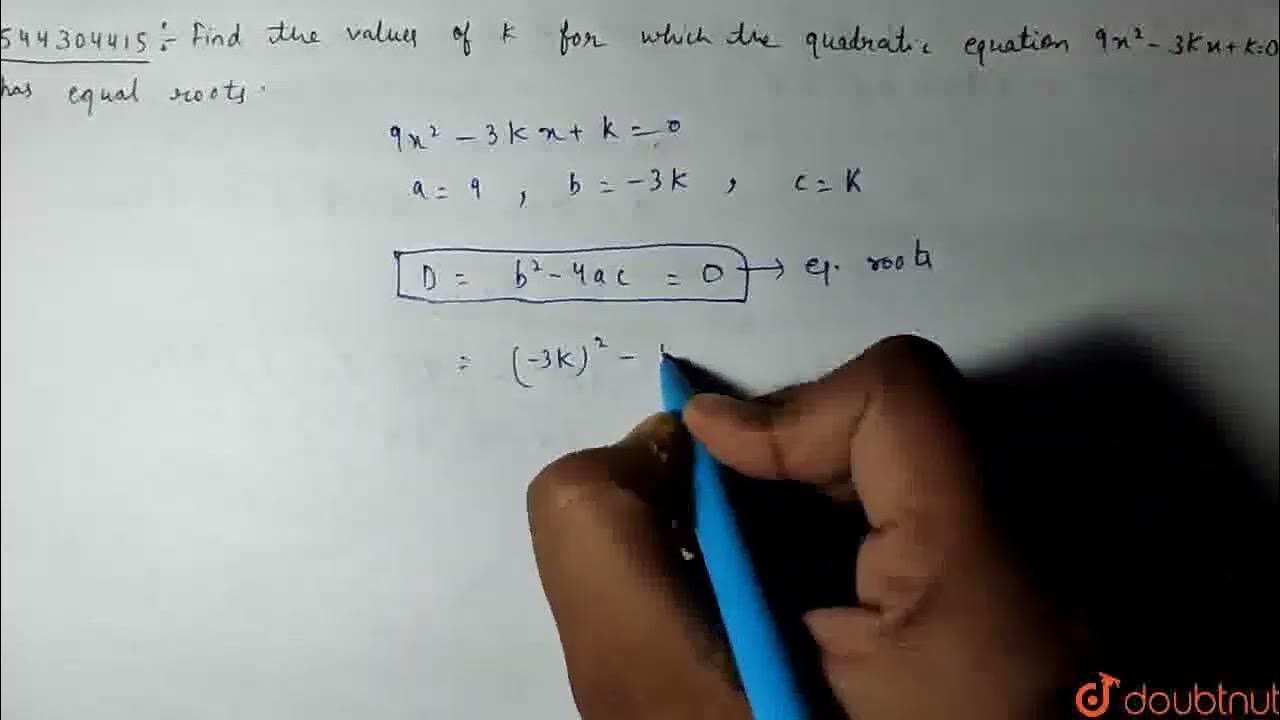 544304415 :- Find the values of k for which the quadratic equation 9x² - 3kx + k=0
has equal roots.
9x² - 3kx + k = 0
a = 9 , b = -3k , c = k
D = b² - 4ac = 0 → eq. roots
= (-3k)² -
doubtnut